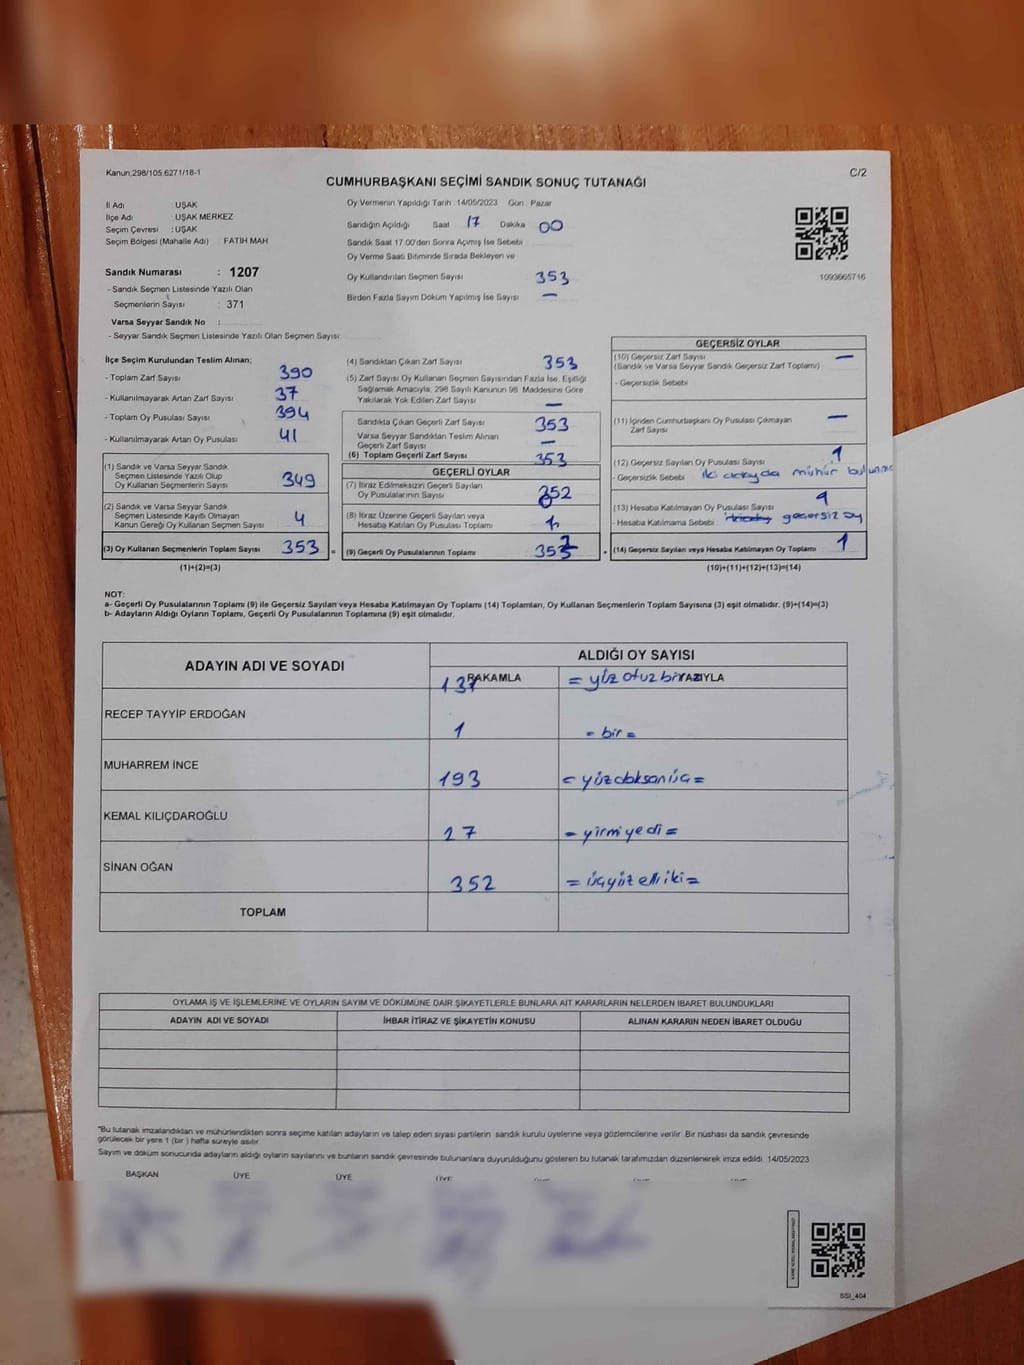 Kanun;298/105.6271/18-1
C/2
CUMHURBAŞKANI SEÇİMİ SANDIK SONUÇ TUTANAĞI
İl Adı : UŞAK
İlçe Adı : UŞAK MERKEZ
Seçim Çevresi : UŞAK
Seçim Bölgesi (Mahalle Adı) : FATİH MAH
Sandık Numarası : 1207
- Sandık Seçmen Listesinde Yazılı Olan
Seçmenlerin Sayısı : 371
Varsa Seyyar Sandık No :
- Seyyar Sandık Seçmen Listesinde Yazılı Olan Seçmen Sayısı:
Oy Vermenin Yapıldığı Tarih :14/05/2023 Gün : Pazar
Sandığın Açıldığı Saat 17 Dakika 00
Sandık Saat 17.00'den Sonra Açımış İse Sebebi
Oy Verme Saati Bitiminde Sırada Bekleyen ve
Oy Kullandırılan Seçmen Sayısı 353
Birden Fazla Sayım Döküm Yapılmış İse Sayısı —
1093665716
İlçe Seçim Kurulundan Teslim Alınan;
- Toplam Zarf Sayısı 390
- Kullanılmayarak Artan Zarf Sayısı 37
- Toplam Oy Pusulası Sayısı 394
- Kullanılmayarak Artan Oy Pusulası 41
(1) Sandık ve Varsa Seyyar Sandık
Seçmen Listesinde Yazılı Olup
Oy Kullanan Seçmenlerin Sayısı 349
(2) Sandık ve Varsa Seyyar Sandık
Seçmen Listesinde Kayıtlı Olmayan
Kanun Gereği Oy Kullanan Seçmen Sayısı 4
(3) Oy Kullanan Seçmenlerin Toplam Sayısı 353 =
(1)+(2)=(3)
(4) Sandıktan Çıkan Zarf Sayısı 353
(5) Zarf Sayısı Oy Kullanan Seçmen Sayısından Fazla İse, Eşitliği
Sağlamak Amacıyla, 298 Sayılı Kanunun 98. Maddesine Göre
Yakılarak Yok Edilen Zarf Sayısı —
Sandıkta Çıkan Geçerli Zarf Sayısı 353
Varsa Seyyar Sandıktan Teslim Alınan
Geçerli Zarf Sayısı —
(6) Toplam Geçerli Zarf Sayısı 353
GEÇERLİ OYLAR
(7) İtiraz Edilmeksizin Geçerli Sayılan
Oy Pusulalarının Sayısı 352
(8) İtiraz Üzerine Geçerli Sayılan veya
Hesaba Katılan Oy Pusulası Toplamı
(9) Geçerli Oy Pusulalarının Toplamı 352 +
GEÇERSİZ OYLAR
(10) Geçersiz Zarf Sayısı —
(Sandık ve Varsa Seyyar Sandık Geçersiz Zarf Toplamı)
- Geçersizlik Sebebi
(11) İçinden Cumhurbaşkanı Oy Pusulası Çıkmayan
Zarf Sayısı —
(12) Geçersiz Sayılan Oy Pusulası Sayısı 1
- Geçersizlik Sebebi iki adayda mühür
(13) Hesaba Katılmayan Oy Pusulası Sayısı 1
- Hesaba Katılmama Sebebi geçersiz oy
(14) Geçersiz Sayılan veya Hesaba Katılmayan Oy Toplamı 1
(10)+(11)+(12)+(13)=(14)
NOT:
a- Geçerli Oy Pusulalarının Toplamı (9) ile Geçersiz Sayılan veya Hesaba Katılmayan Oy Toplamı (14) Toplamları, Oy Kullanan Seçmenlerin Toplam Sayısına (3) eşit olmalıdır. (9)+(14)=(3)
b- Adayların Aldığı Oyların Toplamı, Geçerli Oy Pusulalarının Toplamına (9) eşit olmalıdır.
ADAYIN ADI VE SOYADI
ALDIĞI OY SAYISI
RAKAMLA YAZIYLA
131 = yüz otuz bir
RECEP TAYYİP ERDOĞAN
1 = bir =
MUHARREM İNCE
193 = yüzdoksanüç =
KEMAL KILIÇDAROĞLU
27 = yirmiyedi =
SİNAN OĞAN
352 = üçyüzelliiki =
TOPLAM
OYLAMA İŞ VE İŞLEMLERİNE VE OYLARIN SAYIM VE DÖKÜMÜNE DAİR ŞİKAYETLERLE BUNLARA AİT KARARLARIN NELERDEN İBARET BULUNDUKLARI
ADAYIN ADI VE SOYADI İHBAR İTİRAZ VE ŞİKAYETİN KONUSU ALINAN KARARIN NEDEN İBARET OLDUĞU
*Bu tutanak imzalandıktan ve mühürlendikten sonra seçime katılan adayların ve talep eden siyasi partilerin sandık kurulu üyelerine veya gözlemcilerine verilir. Bir nüshası da sandık çevresinde
görülecek bir yere 1 (bir ) hafta süreyle asılır.
Sayım ve döküm sonucunda adayların aldığı oyların sayılarını ve bunların sandık çevresinde bulunanlara duyurulduğunu gösteren bu tutanak tarafımızdan düzenlenerek imza edildi. 14/05/2023
BAŞKAN ÜYE ÜYE ÜYE
SSI_404